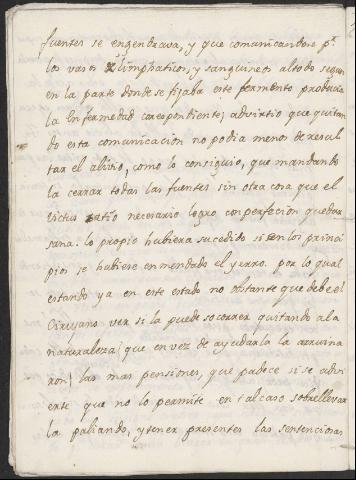 fuentes se engendrava, y que comunicandose pr.
los vasos limphaticos, y sanguineos al todo segun
en la parte donde se fijaba este fermento producia
la Enfermedad correspondiente; advirtio que quitan
do esta comunicacion no podia menos de resul
tar el alivio, como lo consiguio, que mandando
la cerrar todas las fuentes sin otra cosa que el
victus ratio necesario logro con perfecion quedar
sana. lo propio hubiera sucedido si en los princi
pios se hubiese enmendado el yerro. por lo qual
estando ya en este estado no obstante que debe el
Cirujano ver si la puede socorrer quitando a la
naturaleza (que en vez de ayudarla la arruina
ron) las mas pensiones, que padece si se advi
erte que no lo permite en tal caso sobrellevar
la paliando, y tener presentes las sentenciosas